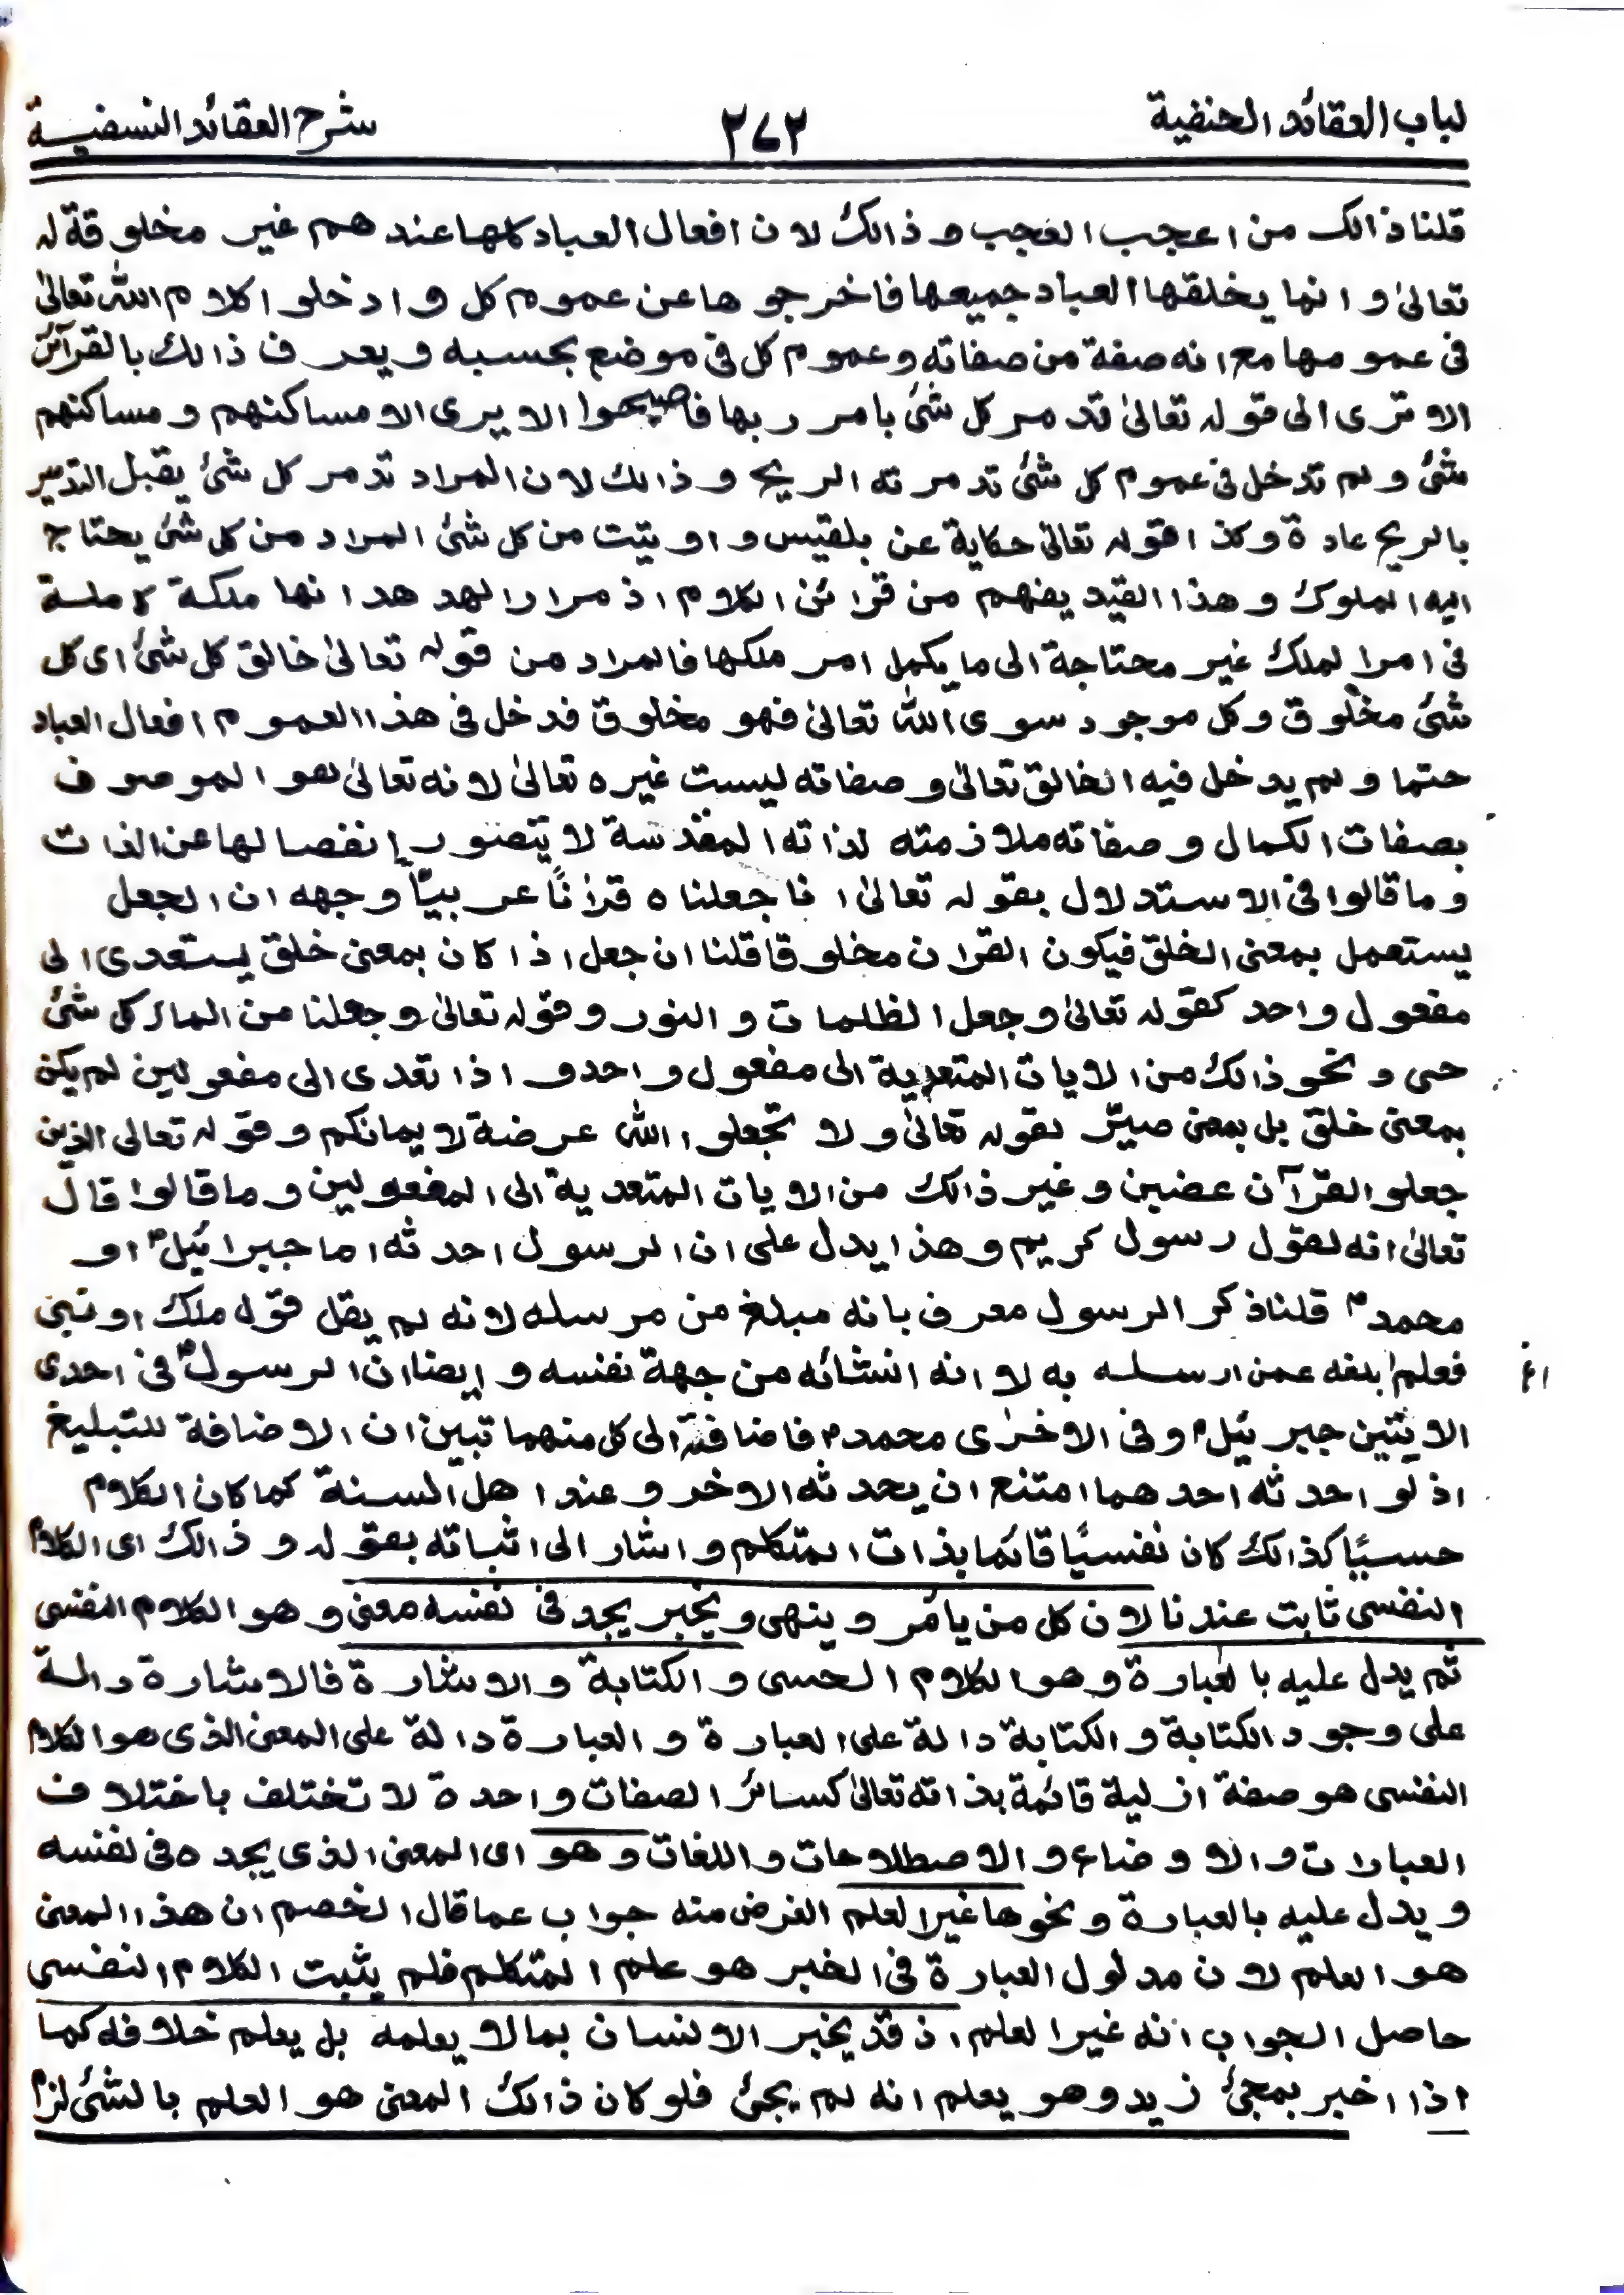 لباب العقائد الحنفية ٢٧٢ شرح العقائد النسفية
قلنا ذالك من اعجب العجب و ذالك لان افعال العباد كلها عند هم غير مخلوقة له
تعالىٰ و انما يخلقها العباد جميعها فاخرجوها عن عموم كل و ادخلوا كلام الله تعالىٰ
فى عمومها مع انه صفة من صفاته وعموم كل فى موضع بحسبه و يعرف ذالك بالقرآئن
الا ترى الى قوله تعالىٰ تدمر كل شئ بامر ربها فاصبحوا لا يرى الا مساكنهم و مساكنهم
شئ و لم تدخل فى عموم كل شئ تدمرته الريح و ذالك لان المراد تدمر كل شئ يقبل التدمير
بالريح عادة وكذا قوله تعالىٰ حكاية عن بلقيس و اوتيت من كل شئ المراد من كل شئ يحتاج
اليه الملوك و هذا القيد يفهم من قرائن الكلام اذ مراد الهدهد انها ملكة كاملة
فى امر الملك غير محتاجة الى ما يكمل امر ملكها فالمراد من قوله تعالىٰ خالق كل شئ اى كل
شئ مخلوق وكل موجود سوى الله تعالىٰ فهو مخلوق فدخل فى هذا العموم افعال العباد
حتما و لم يدخل فيه الخالق تعالىٰ و صفاته ليست غيره تعالىٰ لانه تعالىٰ هو الموصوف
بصفات الكمال و صفاته ملازمته لذاته المقدسة لا يتصور انفصالها عن الذات
و ما قالوا فى الاستدلال بقوله تعالىٰ انا جعلناه قرانًا عربيًّا وجهه ان الجعل
يستعمل بمعنى الخلق فيكون القران مخلوقا قلنا ان جعل اذا كان بمعنى خلق يتعدى الى
مفعول واحد كقوله تعالىٰ وجعل الظلمات و النور و قوله تعالىٰ وجعلنا من الماء كل شئ
حى و نحو ذالك من الايات المتعدية الى مفعول واحد و اذا تعدى الى مفعولين لم يكن
بمعنى خلق بل بمعنى صيّر لقوله تعالىٰ و لا تجعلوا الله عرضة لايمانكم و قوله تعالى الذين
جعلو القرآن عضين و غير ذالك من الايات المتعدية الى المفعولين و ما قالوا قال
تعالىٰ انه لقول رسول كريم و هذا يدل على ان الرسول احدثه اما جبرائيل ؑ او
محمد ؐ قلنا ذكر الرسول معرف بانه مبلغ من مرسله لانه لم يقل قوله ملك او نبى
فعلم ابلغه عمن ارسله به لا انه انشائه من جهة نفسه و ايضا ان الرسول فى احدى
الايتين جبرئيل و فى الاخرٰى محمد فاضافته الى كل منهما تبين ان الاضافة للتبليغ
اذ لو احدثه احدهما امتنع ان يحدثه الاخر و عند اهل السنة كما كان الكلام
حسيًّا كذالك كان نفسيًّا قائما بذات المتكلم و اشار الى اثباته بقوله و ذالك اى الكلام
النفسى ثابت عندنا لان كل من يأمر و ينهى و يخبر يجد فى نفسه معنى و هو الكلام النفسى
ثم يدل عليه بالعبارة و هو الكلام الحسى و الكتابة و الاشارة فالاشارة دالة
على وجود الكتابة و الكتابة دالة على العبارة و العبارة دالة على المعنى الذى هو الكلام
النفسى هو صفة ازلية قائمة بذاته تعالىٰ كسائر الصفات واحدة لا تختلف باختلاف
العبارات و الاوضاع و الاصطلاحات و اللغات و هو اى المعنى الذى يجده فى نفسه
و يدل عليه بالعبارة و نحوها غير العلم الغرض منه جواب عما قال الخصم ان هذا المعنى
هو العلم لان مدلول العبارة فى الخبر هو علم المتكلم فلم يثبت الكلام النفسى
حاصل الجواب انه غير العلم اذ قد يخبر الانسان بما لا يعلمه بل يعلم خلافه كما
اذا اخبر بمجئ زيد و هو يعلم انه لم يجئ فلو كان ذالك المعنى هو العلم بالشئ لزم